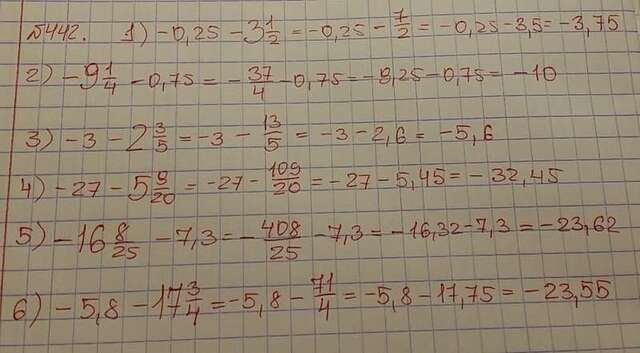 №442. 1) -0,25 - 3 1/2 = -0,25 - 7/2 = -0,25 - 3,5 = -3,75
2) -9 1/4 - 0,75 = - 37/4 - 0,75 = -9,25 - 0,75 = -10
3) -3 - 2 3/5 = -3 - 13/5 = -3 - 2,6 = -5,6
4) -27 - 5 9/20 = -27 - 109/20 = -27 - 5,45 = -32,45
5) -16 8/25 - 7,3 = - 408/25 - 7,3 = -16,32 - 7,3 = -23,62
6) -5,8 - 17 3/4 = -5,8 - 71/4 = -5,8 - 17,75 = -23,55